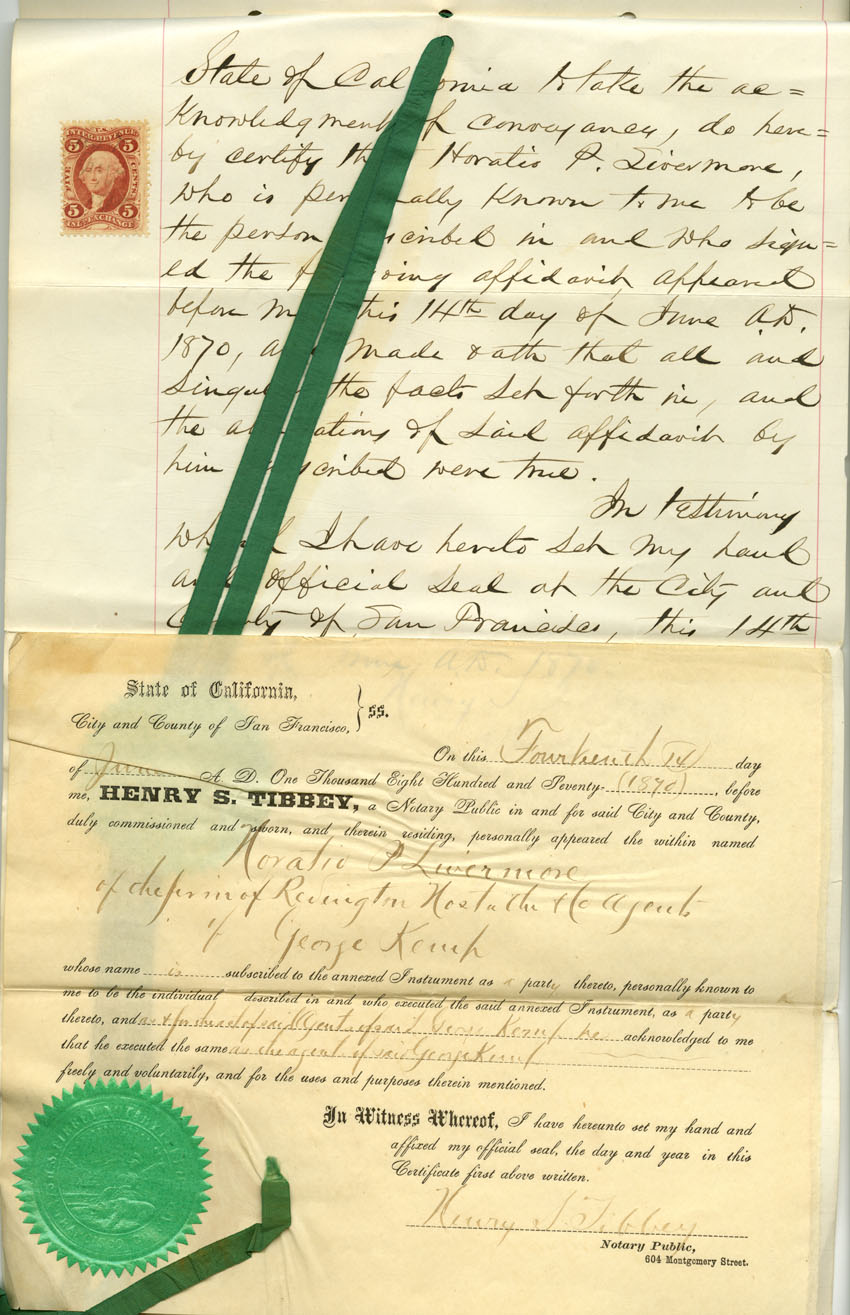 State of Cal ornia to take the ac=
knowledgment of conveyance, do here=
by certify th Horatio P. Livermore,
who is per ally known to me to be
the person scribed in and who sign=
ed the f going affidavit, appeared
before m this 14th day of June A.D.
1870, a made oath that all and
singul the facts set forth in, and
the a ations of said affidavit by
him scribed were true.
In testimony
wh I have hereto set my hand
and official seal at the City and
County of San Francisco, this 14th
A.D. 1870
U.S. INTER. REVENUE
5 5
FIVE CENTS
5 5
INLD EXCHANGE
State of California,
City and County of San Francisco, } ss.
On this Fourteenth (14) day
of June A. D. One Thousand Eight Hundred and Seventy (1870), before
me, HENRY S. TIBBEY, a Notary Public in and for said City and County,
duly commissioned and sworn, and therein residing, personally appeared the within named
Horatio P Livermore
of the firm of Redington Hostetter & Co Agents
of George Kemp
whose name is subscribed to the annexed Instrument as a party thereto, personally known to
me to be the individual described in and who executed the said annexed Instrument, as a party
thereto, and as said Agent of said George Kemp he acknowledged to me
that he executed the same as the agent of said George Kemp
freely and voluntarily, and for the uses and purposes therein mentioned.
In Witness Whereof, I have hereunto set my hand and
affixed my official seal, the day and year in this
Certificate first above written.
Henry S. Tibbey
Notary Public,
604 Montgomery Street.